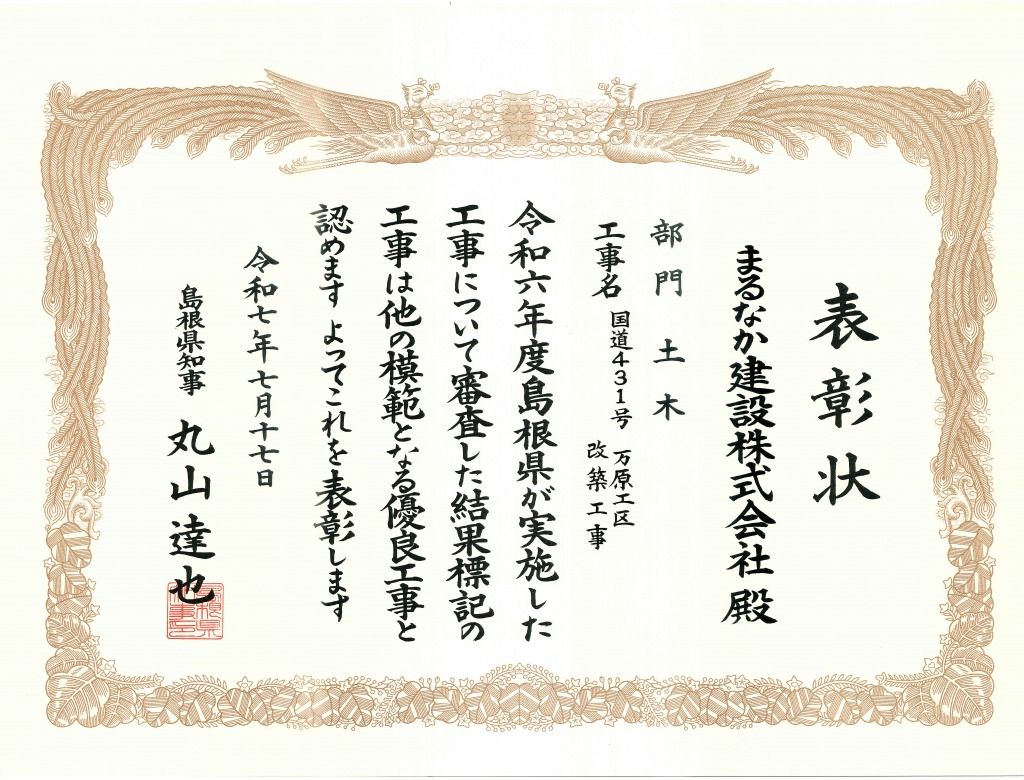 表彰状
まるなか建設株式会社 殿
部門 土木
工事名 国道431号 万原工区
改築工事
令和六年度島根県が実施した
工事について審査した結果標記の
工事は他の模範となる優良工事と
認めます よってこれを表彰します
令和七年七月十七日
島根県知事 丸山達也